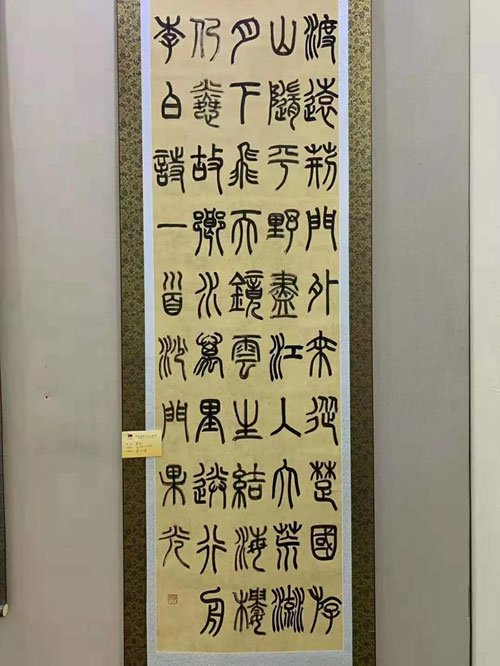 渡遠荊門外來從楚國斿
山隨平野盡江入大荒流
月下飛天鏡雲生結海樓
仍憐故鄉水萬里送行舟
李白詩一首沙門果光